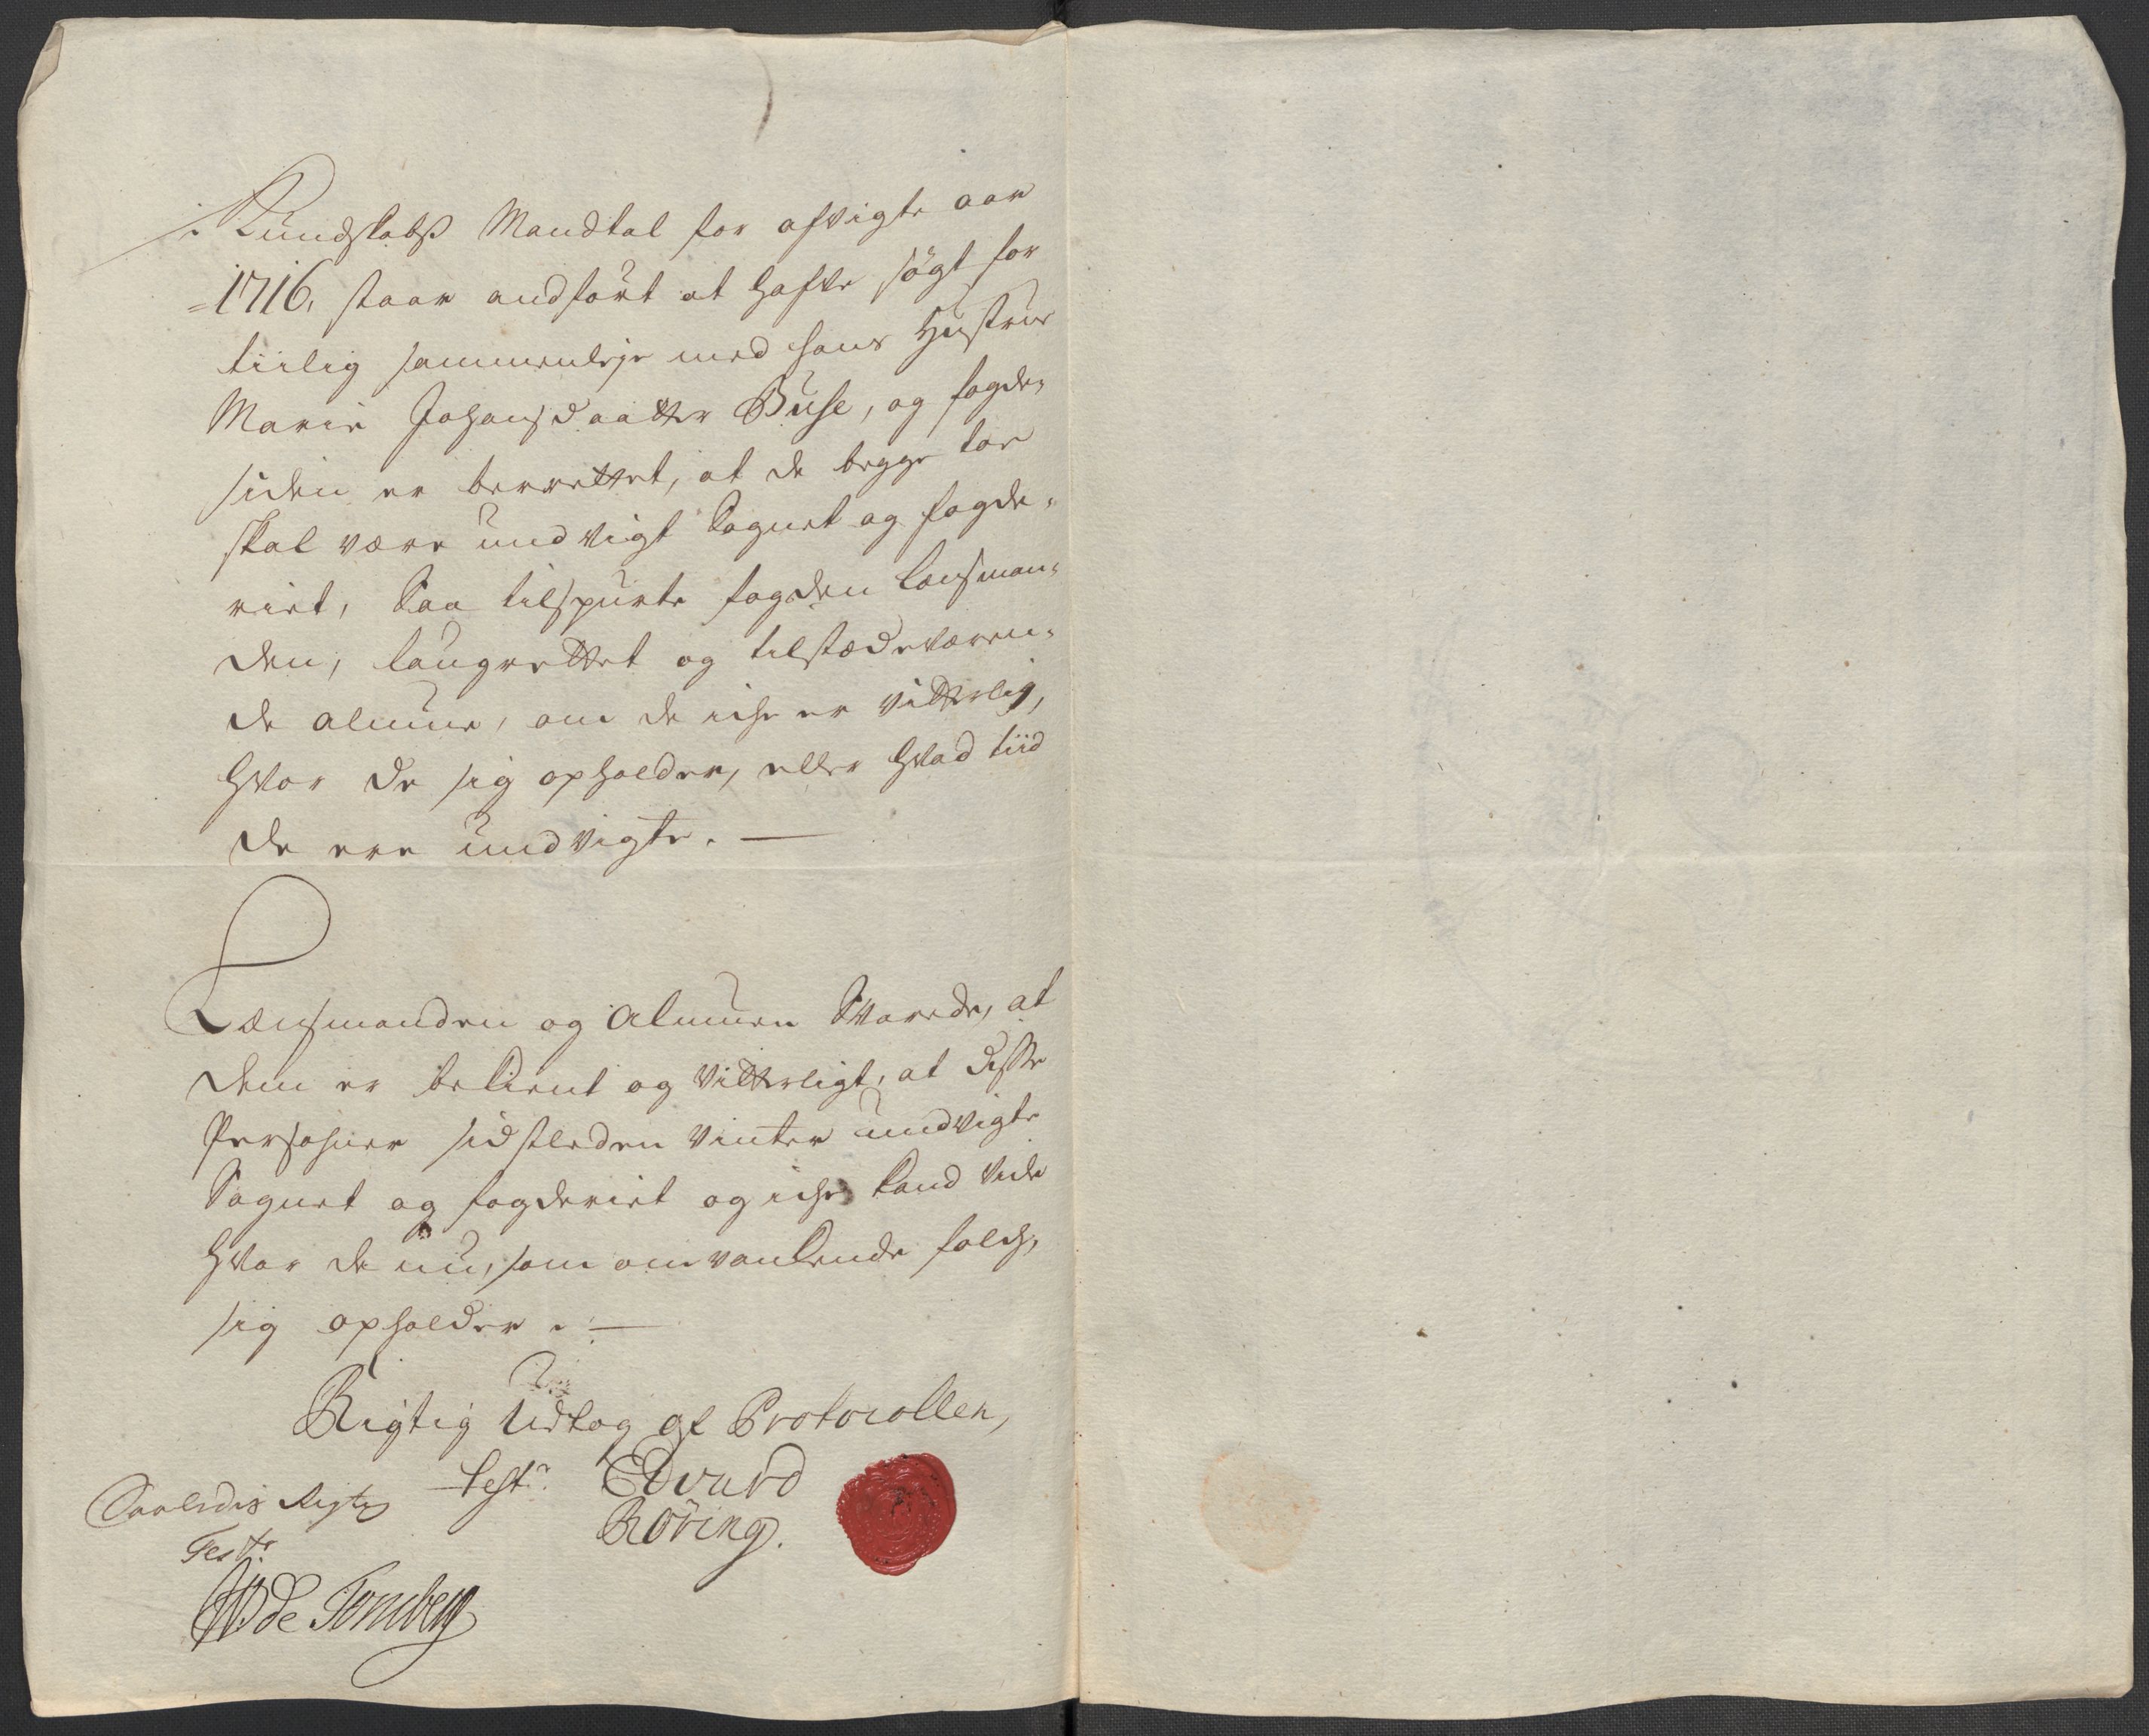 i Kundskabs Mandtal for afvigte aar
1716, staar andført at hafve søgt for
tiilig sammenleje med hans Hustrue
Marie Johansdaatter Buse, og fogden
siden er berrettet, at de begge tor
skal være undvigt Sognet og fogde,
riet, Saa tilspurte fogden Lensman,
den, Laugrettet og tilstædeværen,
de almue, om de iche er vitterlig,
hvor de sig opholder, eller hvad tiid
de ere undvigte. —
Lænsmanden og Almuen Svarede, at
dem er bekient og vitterligt, at disse
Persohner sidstleden vinter undvigte
Sognet og fogderiet og iche kand vide
hvor de nu, som omvankende folch,
sig opholder. —
Rigtig Udtog af Protocollen,
Test: Edvard
Röring.
Saaledis Rigtig
Test:
de Tonsberg